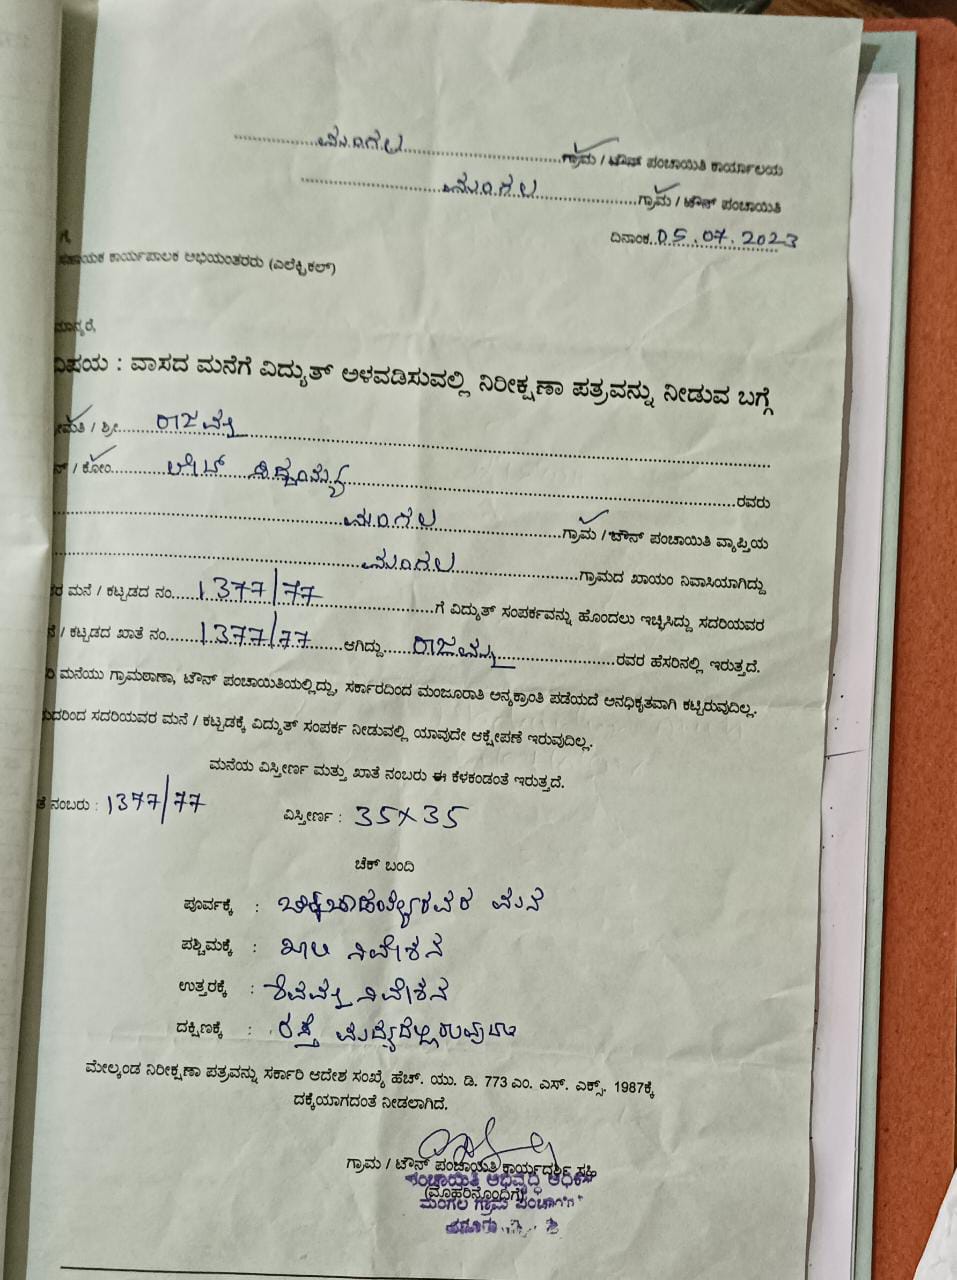 ಮಂಗಲ ಗ್ರಾಮ / ಟೌನ್ ಪಂಚಾಯಿತಿ ಕಾರ್ಯಾಲಯ
ಮಂಗಲ ಗ್ರಾಮ / ಟೌನ್ ಪಂಚಾಯಿತಿ
ದಿನಾಂಕ 05.07.2023
ಗೆ,
ಸಹಾಯಕ ಕಾರ್ಯಪಾಲಕ ಅಭಿಯಂತರರು (ಎಲೆಕ್ಟ್ರಿಕಲ್)
ಮಾನ್ಯರೆ,
ವಿಷಯ : ವಾಸದ ಮನೆಗೆ ವಿದ್ಯುತ್ ಅಳವಡಿಸುವಲ್ಲಿ ನಿರೀಕ್ಷಣಾ ಪತ್ರವನ್ನು ನೀಡುವ ಬಗ್ಗೆ
ಮತಿ / ಶ್ರೀ. ರಾಜಮ್ಮ
ನ್ / ಕೋಂ. ಲೇಟ್ ಸಿದ್ದಯ್ಯ ರವರು
ಮಂಗಲ ಗ್ರಾಮ / ಟೌನ್ ಪಂಚಾಯಿತಿ ವ್ಯಾಪ್ತಿಯ
ಮಂಗಲ ಗ್ರಾಮದ ಖಾಯಂ ನಿವಾಸಿಯಾಗಿದ್ದು
ರ ಮನೆ / ಕಟ್ಟಡದ ನಂ. 1377/77 ಗೆ ವಿದ್ಯುತ್ ಸಂಪರ್ಕವನ್ನು ಹೊಂದಲು ಇಚ್ಛಿಸಿದ್ದು ಸದರಿಯವರ
ನೆ / ಕಟ್ಟಡದ ಖಾತೆ ನಂ. 1377/77 ಆಗಿದ್ದು ರಾಜಮ್ಮ ರವರ ಹೆಸರಿನಲ್ಲಿ ಇರುತ್ತದೆ.
ರಿ ಮನೆಯು ಗ್ರಾಮಠಾಣಾ, ಟೌನ್ ಪಂಚಾಯಿತಿಯಲ್ಲಿದ್ದು, ಸರ್ಕಾರದಿಂದ ಮಂಜೂರಾತಿ ಅನ್ಯಕ್ರಾಂತಿ ಪಡೆಯದೆ ಅನಧಿಕೃತವಾಗಿ ಕಟ್ಟಿರುವುದಿಲ್ಲ.
ದರಿಂದ ಸದರಿಯವರ ಮನೆ / ಕಟ್ಟಡಕ್ಕೆ ವಿದ್ಯುತ್ ಸಂಪರ್ಕ ನೀಡುವಲ್ಲಿ ಯಾವುದೇ ಆಕ್ಷೇಪಣೆ ಇರುವುದಿಲ್ಲ.
ಮನೆಯ ವಿಸ್ತೀರ್ಣ ಮತ್ತು ಖಾತೆ ನಂಬರು ಈ ಕೆಳಕಂಡಂತೆ ಇರುತ್ತದೆ.
ತೆ ನಂಬರು : 1377/77 ವಿಸ್ತೀರ್ಣ : 35x35
ಚೆಕ್ ಬಂದಿ
ಪೂರ್ವಕ್ಕೆ : ರವರ ಮನೆ
ಪಶ್ಚಿಮಕ್ಕೆ : ಖಾಲಿ ನಿವೇಶನ
ಉತ್ತರಕ್ಕೆ : ಶಿವಮ್ಮ ನಿವೇಶನ
ದಕ್ಷಿಣಕ್ಕೆ : ರಸ್ತೆ ಮಧ್ಯದಲ್ಲಿರುವುದು
ಮೇಲ್ಕಂಡ ನಿರೀಕ್ಷಣಾ ಪತ್ರವನ್ನು ಸರ್ಕಾರಿ ಆದೇಶ ಸಂಖ್ಯೆ ಹೆಚ್. ಯು. ಡಿ. 773 ಎಂ. ಎಸ್. ಎಕ್ಸ್. 1987ಕ್ಕೆ
ದಕ್ಕೆಯಾಗದಂತೆ ನೀಡಲಾಗಿದೆ.
ಗ್ರಾಮ / ಟೌನ್ ಪಂಚಾಯತಿ ಕಾರ್ಯದರ್ಶಿ ಸಹಿ
ಪಂಚಾಯಿತಿ ಅಭಿವೃದ್ಧಿ ಅಧಿಕಾರಿ
(ಮೊಹರಿನೊಂದಿಗೆ)
ಮಂಗಲ ಗ್ರಾಮ ಪಂಚಾಯಿತಿ